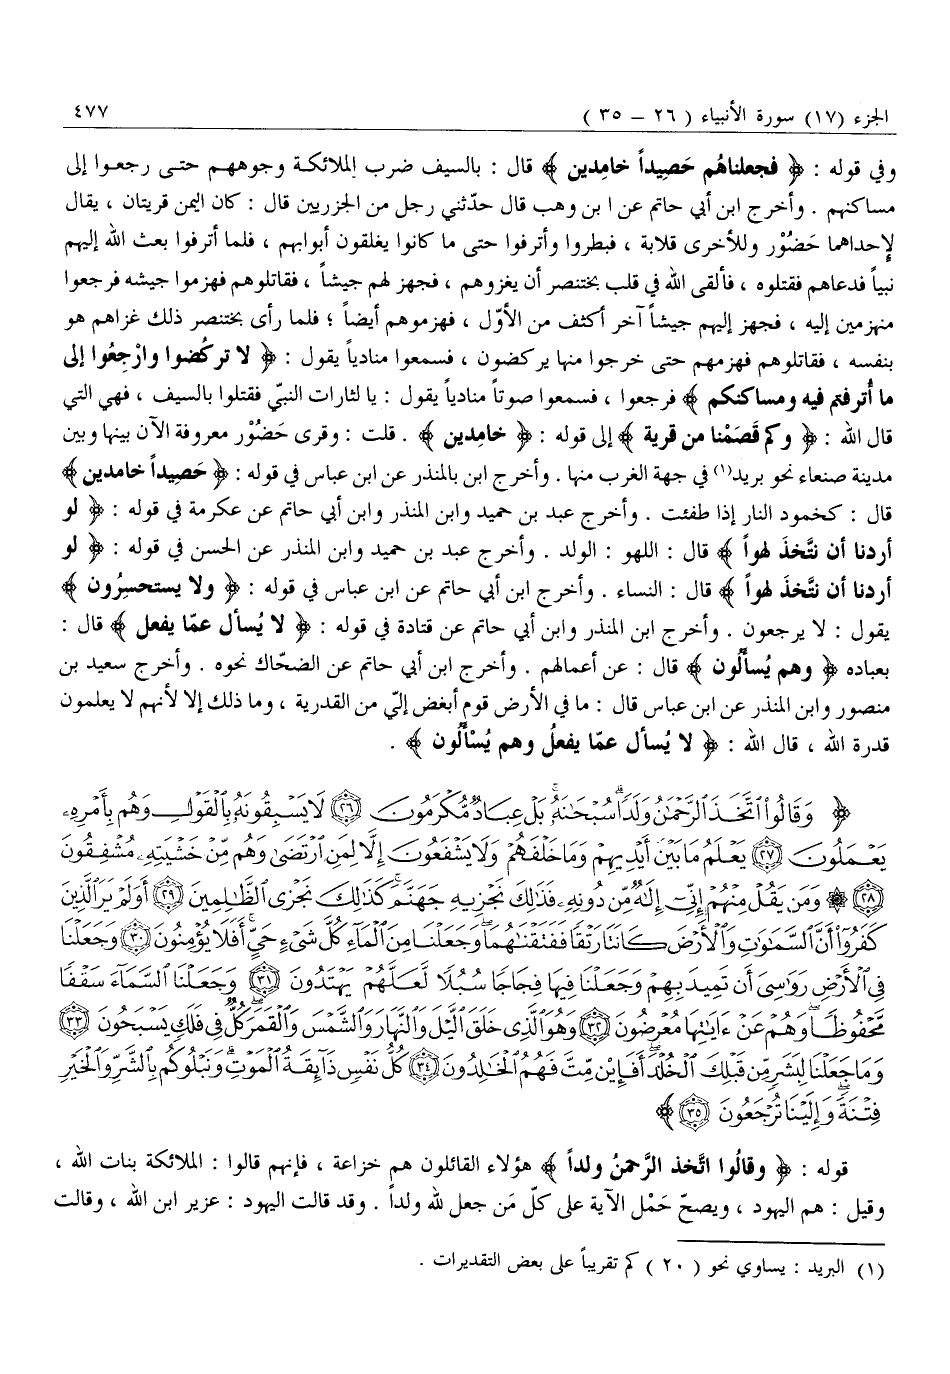 الجزء (١٧) سورة الأنبياء ( ٢٦ – ٣٥ ) ٤٧٧
وفي قوله : ﴿ فجعلناهُم حَصيداً خامِدين ﴾ قال : بالسيف ضرب الملائكة وجوههم حتى رجعوا إلى
مساكنهم . وأخرج ابن أبي حاتم عن ابن وهب قال حدّثني رجل من الجزريين قال : كان اليمن قريتان ، يقال
لإحداهما حَضُوْر وللأخرى قلابة ، فبطروا وأترفوا حتى ما كانوا يغلقون أبوابهم ، فلما أترفوا بعث الله إليهم
نبياً فدعاهم فقتلوه ، فألقى الله في قلب بختنصر أن يغزوهم ، فجهز لهم جيشاً ، فقاتلوهم فهزموا جيشه فرجعوا
منهزمين إليه ، فجهز إليهم جيشاً آخر أكثف من الأوّل ، فهزموهم أيضاً ؛ فلما رأى بختنصر ذلك غزاهم هو
بنفسه ، فقاتلوهم فهزمهم حتى خرجوا منها يركضون ، فسمعوا منادياً يقول : ﴿ لا تركُضوا وارْجِعُوا إلى
ما أُترفتم فيه ومساكنكم ﴾ فرجعوا ، فسمعوا صوتاً منادياً يقول : يا لثارات النبيّ فقتلوا بالسيف ، فهي التي
قال الله : ﴿ وكم قَصَمْنا من قرية ﴾ إلى قوله : ﴿ خامِدين ﴾ . قلت : وقرى حَضُوْر معروفة الآن بينها وبين
مدينة صنعاء نحو بريد(١) في جهة الغرب منها . وأخرج ابن بالمنذر عن ابن عباس في قوله : ﴿ حَصيداً خامدين ﴾
قال : كخمود النار إذا طفئت . وأخرج عبد بن حميد وابن المنذر وابن أبي حاتم عن عكرمة في قوله : ﴿ لو
أردنا أن نتَّخذ لهواً ﴾ قال : اللهو : الولد . وأخرج عبد بن حميد وابن المنذر عن الحسن في قوله : ﴿ لو
أردنا أن نتَّخذَ لهواً ﴾ قال : النساء . وأخرج ابن أبي حاتم عن ابن عباس في قوله : ﴿ ولا يستحسِرُون ﴾
يقول : لا يرجعون . وأخرج ابن المنذر وابن أبي حاتم عن قتادة في قوله : ﴿ لا يُسأل عمّا يفعل ﴾ قال :
بعباده ﴿ وهم يُسألُون ﴾ قال : عن أعمالهم . وأخرج ابن أبي حاتم عن الضحّاك نحوه . وأخرج سعيد بن
منصور وابن المنذر عن ابن عباس قال : ما في الأرض قوم أبغض إليّ من القدرية ، وما ذلك إلا لأنهم لا يعلمون
قدرة الله ، قال الله : ﴿ لا يُسأل عمّا يفعلُ وهم يُسْألُون ﴾ .
﴿ وَقَالُوا۟ ٱتَّخَذَ ٱلرَّحْمَٰنُ وَلَدًا ۗ سُبْحَٰنَهُۥ ۚ بَلْ عِبَادٌ مُّكْرَمُونَ ٢٦ لَا يَسْبِقُونَهُۥ بِٱلْقَوْلِ وَهُم بِأَمْرِهِۦ
يَعْمَلُونَ ٢٧ يَعْلَمُ مَا بَيْنَ أَيْدِيهِمْ وَمَا خَلْفَهُمْ وَلَا يَشْفَعُونَ إِلَّا لِمَنِ ٱرْتَضَىٰ وَهُم مِّنْ خَشْيَتِهِۦ مُشْفِقُونَ
٢٨ ۞ وَمَن يَقُلْ مِنْهُمْ إِنِّىٓ إِلَٰهٌ مِّن دُونِهِۦ فَذَٰلِكَ نَجْزِيهِ جَهَنَّمَ ۚ كَذَٰلِكَ نَجْزِى ٱلظَّٰلِمِينَ ٢٩ أَوَلَمْ يَرَ ٱلَّذِينَ
كَفَرُوٓا۟ أَنَّ ٱلسَّمَٰوَٰتِ وَٱلْأَرْضَ كَانَتَا رَتْقًا فَفَتَقْنَٰهُمَا ۖ وَجَعَلْنَا مِنَ ٱلْمَآءِ كُلَّ شَىْءٍ حَىٍّ ۖ أَفَلَا يُؤْمِنُونَ ٣٠ وَجَعَلْنَا
فِى ٱلْأَرْضِ رَوَٰسِىَ أَن تَمِيدَ بِهِمْ وَجَعَلْنَا فِيهَا فِجَاجًا سُبُلًا لَّعَلَّهُمْ يَهْتَدُونَ ٣١ وَجَعَلْنَا ٱلسَّمَآءَ سَقْفًا
مَّحْفُوظًا ۖ وَهُمْ عَنْ ءَايَٰتِهَا مُعْرِضُونَ ٣٢ وَهُوَ ٱلَّذِى خَلَقَ ٱلَّيْلَ وَٱلنَّهَارَ وَٱلشَّمْسَ وَٱلْقَمَرَ ۖ كُلٌّ فِى فَلَكٍ يَسْبَحُونَ ٣٣
وَمَا جَعَلْنَا لِبَشَرٍ مِّن قَبْلِكَ ٱلْخُلْدَ ۖ أَفَإِي۟ن مِّتَّ فَهُمُ ٱلْخَٰلِدُونَ ٣٤ كُلُّ نَفْسٍ ذَآئِقَةُ ٱلْمَوْتِ ۗ وَنَبْلُوكُم بِٱلشَّرِّ وَٱلْخَيْرِ
فِتْنَةً ۖ وَإِلَيْنَا تُرْجَعُونَ ٣٥ ﴾
قوله : ﴿ وقالُوا اتَّخذ الرَّحمنُ ولداً ﴾ هؤلاء القائلون هم خزاعة ، فإنهم قالوا : الملائكة بنات الله ،
وقيل : هم اليهود ، ويصحّ حَمْل الآية على كلّ مَن جعل لله ولداً . وقد قالت اليهود : عزير ابن الله ، وقالت
(١) البريد : يساوي نحو ( ٢٠ ) كم تقريباً على بعض التقديرات .